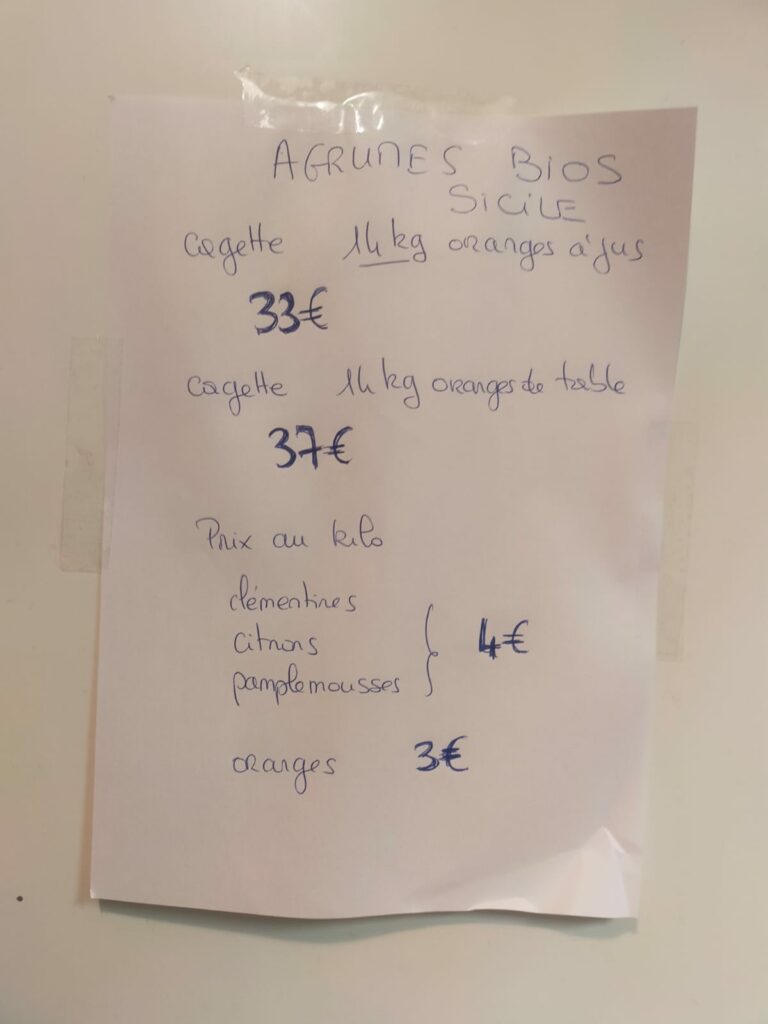 AGRUMES BIOS
SICILE
cagette 14 kg oranges à jus
33€
cagette 14 kg oranges de table
37€
Prix au kilo
clémentines
citrons
pamplemousses
4€
oranges 3€